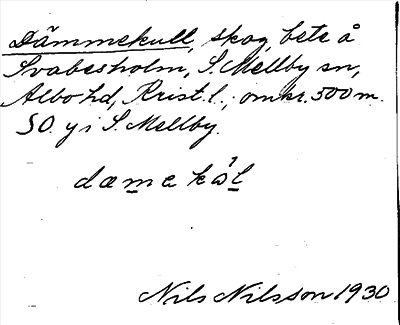 Dämmekull, skog, bete å
Svabesholm, S. Mellby sn,
Albo hd, Krist. l., omkr. 500 m.
SO. y i S. Mellby.
Nils Nilsson 1930